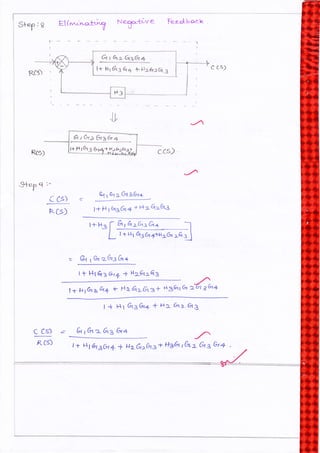 Step:8 Eliminating Negative Feedback
G1 G2 G3 G4
1+ H1 G3 G4 + H2 G2 G3
R(S)
C(S)
H3
G1 G2 G3 G4
R(S)
C(S)
Step 9 :-
C(S) / R(S) = G1 G2 G3 G4 / 1+H1 G3 G4 + H2 G2 G3
1+H3 [ G1 G2 G3 G4 / 1+H1 G3 G4+H2 G2 G3 ]
= G1 G2 G3 G4
1+ H1 G3 G4 + H2 G2 G3
1+ H1 G3 G4 + H2 G2 G3 + H3 G1 G2 G3 G4
1+ H1 G3 G4 + H2 G2 G3
C(S) / R(S) = G1 G2 G3 G4 / 1+ H1 G3 G4 + H2 G2 G3 + H3 G1 G2 G3 G4 .